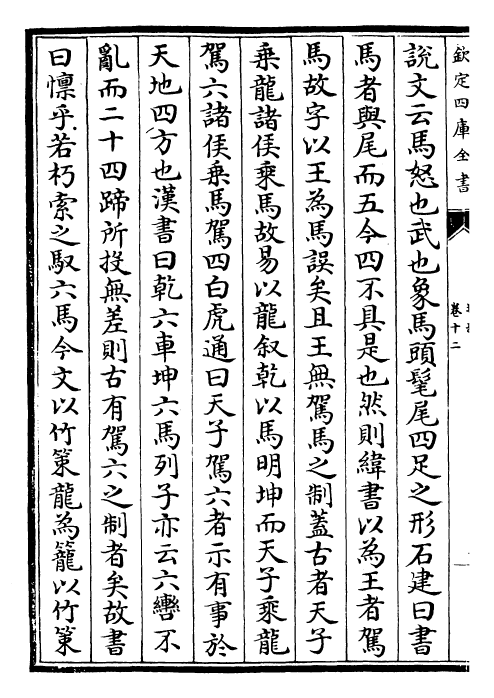 欽定四庫全書
卷十二
說文云馬怒也武也象馬頭髦尾四足之形石建曰書
馬者與尾而五今四不具是也然則緯書以為王者駕
馬故字以王為馬誤矣且王無駕馬之制蓋古者天子
乗龍諸侯乘馬故易以龍叙乾以馬明坤而天子乘龍
駕六諸侯乗馬駕四白虎通曰天子駕六者示有事於
天地四方也漢書曰乾六車坤六馬列子亦云六轡不
亂而二十四蹄所投無差則古有駕六之制者矣故書
曰懍乎若朽索之馭六馬今文以竹策龍為籠以竹策